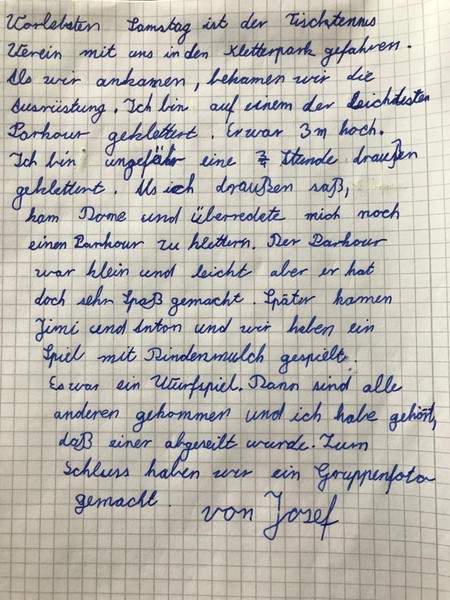 Vorletzten Samstag ist der Tischtennis
Verein mit uns in den Kletterpark gefahren.
Als wir ankamen, bekamen wir die
Ausrüstung. Ich bin auf einem der leichtesten
Parkour geklettert. Er war 3m hoch.
Ich bin ungefähr eine Stunde draußen
geklettert. Als ich draußen saß,
kam Rome und überredete mich noch
einen Parkour zu klettern. Der Parkour
war klein und leicht aber er hat
doch sehr Spaß gemacht. Später kamen
Jimi und Anton und wir haben ein
Spiel mit Rindenmulch gespielt.
Es war ein Wurfspiel. Dann sind alle
anderen gekommen und ich habe gehört,
daß einer abgeseilt wurde. Zum
Schluss haben wir ein Gruppenfoto
gemacht. von Josef